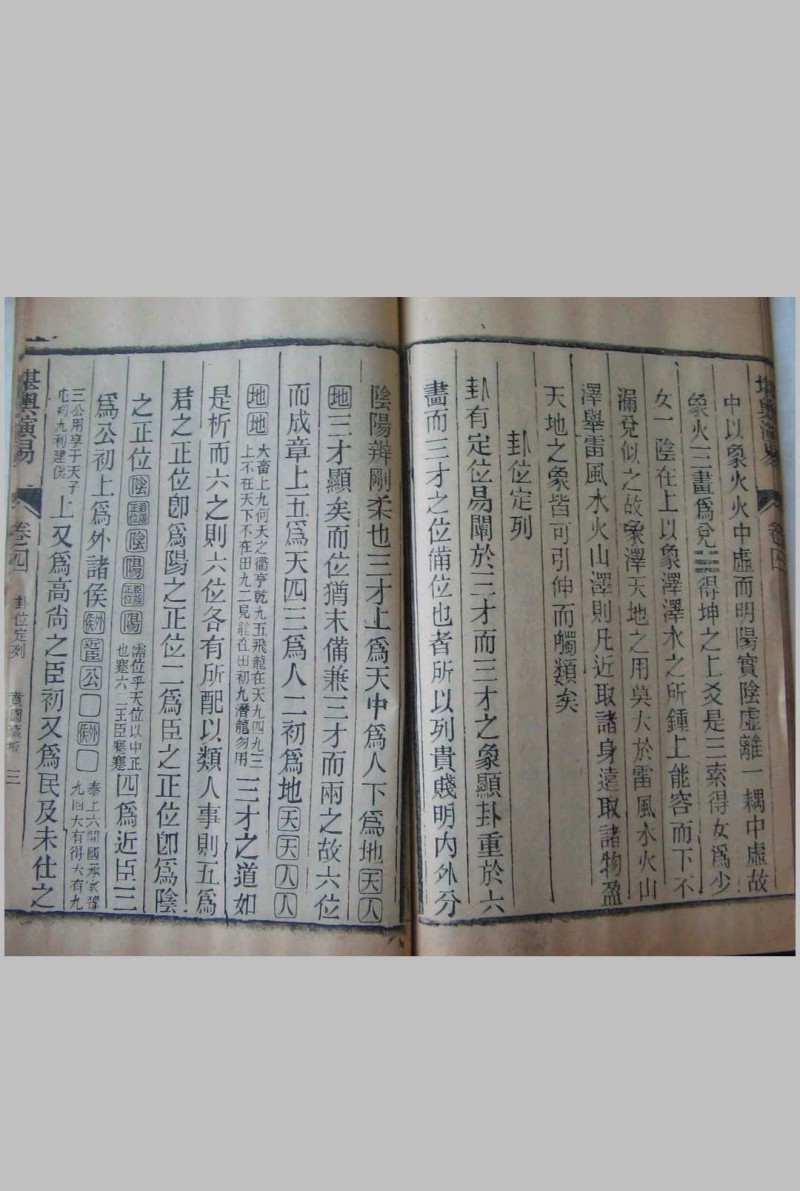 中以象火火中虛而明陽實陰虛離一耦中虛故
象火三畫爲兌☱得坤之上爻是三索得女爲少
女一陰在上以象澤澤水之所鍾上能容而下不
漏兌似之故象澤天地之用莫大於雷風水火山
澤舉雷風水火山澤則凡近取諸身遠取諸物盈
天地之象皆可引伸而觸類矣
卦位定列
卦有定位易闡於三才而三才之象顯卦重於六
畫而三才之位備位也者所以列貴賤明內外分
陰陽辨剛柔也三才上爲天中爲人下爲地天人
地三才顯矣而位猶未備兼三才而兩之故六位
而成章上五爲天四三爲人二初爲地天天人人
地地
大畜上九何天之衢亨乾九五飛龍在天九四九三
上不在天下不在田九二見龍在田初九潛龍勿用
三才之道如
是析而六之則六位各有所配以類人事則五爲
君之正位卽爲陽之正位二爲臣之正位卽爲陰
之正位陰陰陽陽
需位乎天位以中正
也蹇六二王臣蹇蹇
四爲近臣三
爲公初上爲外諸侯公
泰上六開國承家
九四大有得大有九
三公用享于天子
屯初九利建侯
上又爲高尚之臣初又爲民及未仕之
堪輿演易
卷之四
卦位定列
三
堪輿演易
卷四